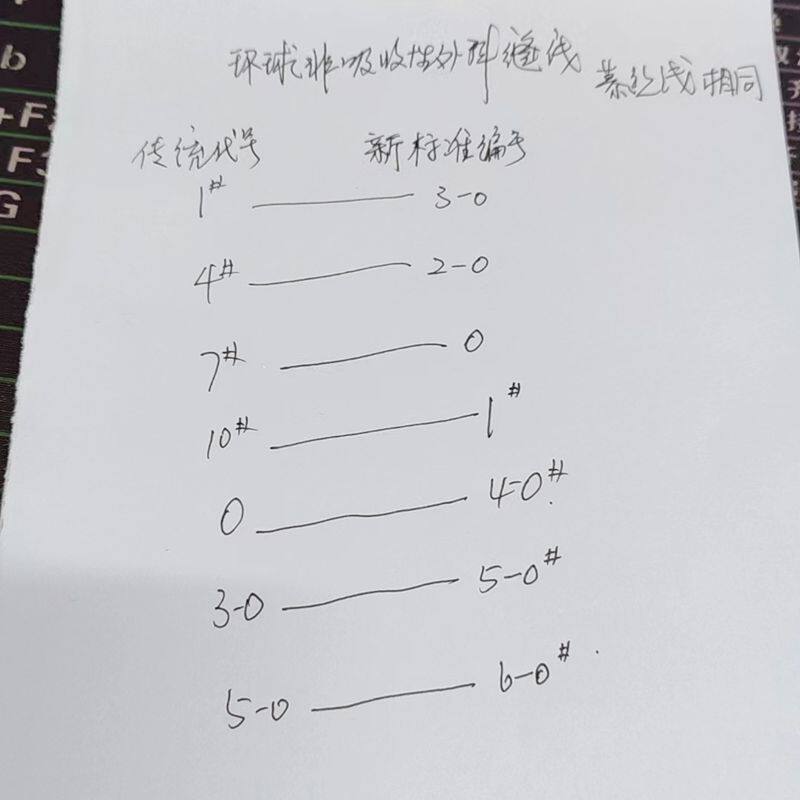 环球非吸收性外科缝线 慕丝线相同
传统代号 新标准编号
1# 3-0
4# 2-0
7# 0
10# 1#
0 4-0#
3-0 5-0#
5-0 6-0#
b
+F
F3
G